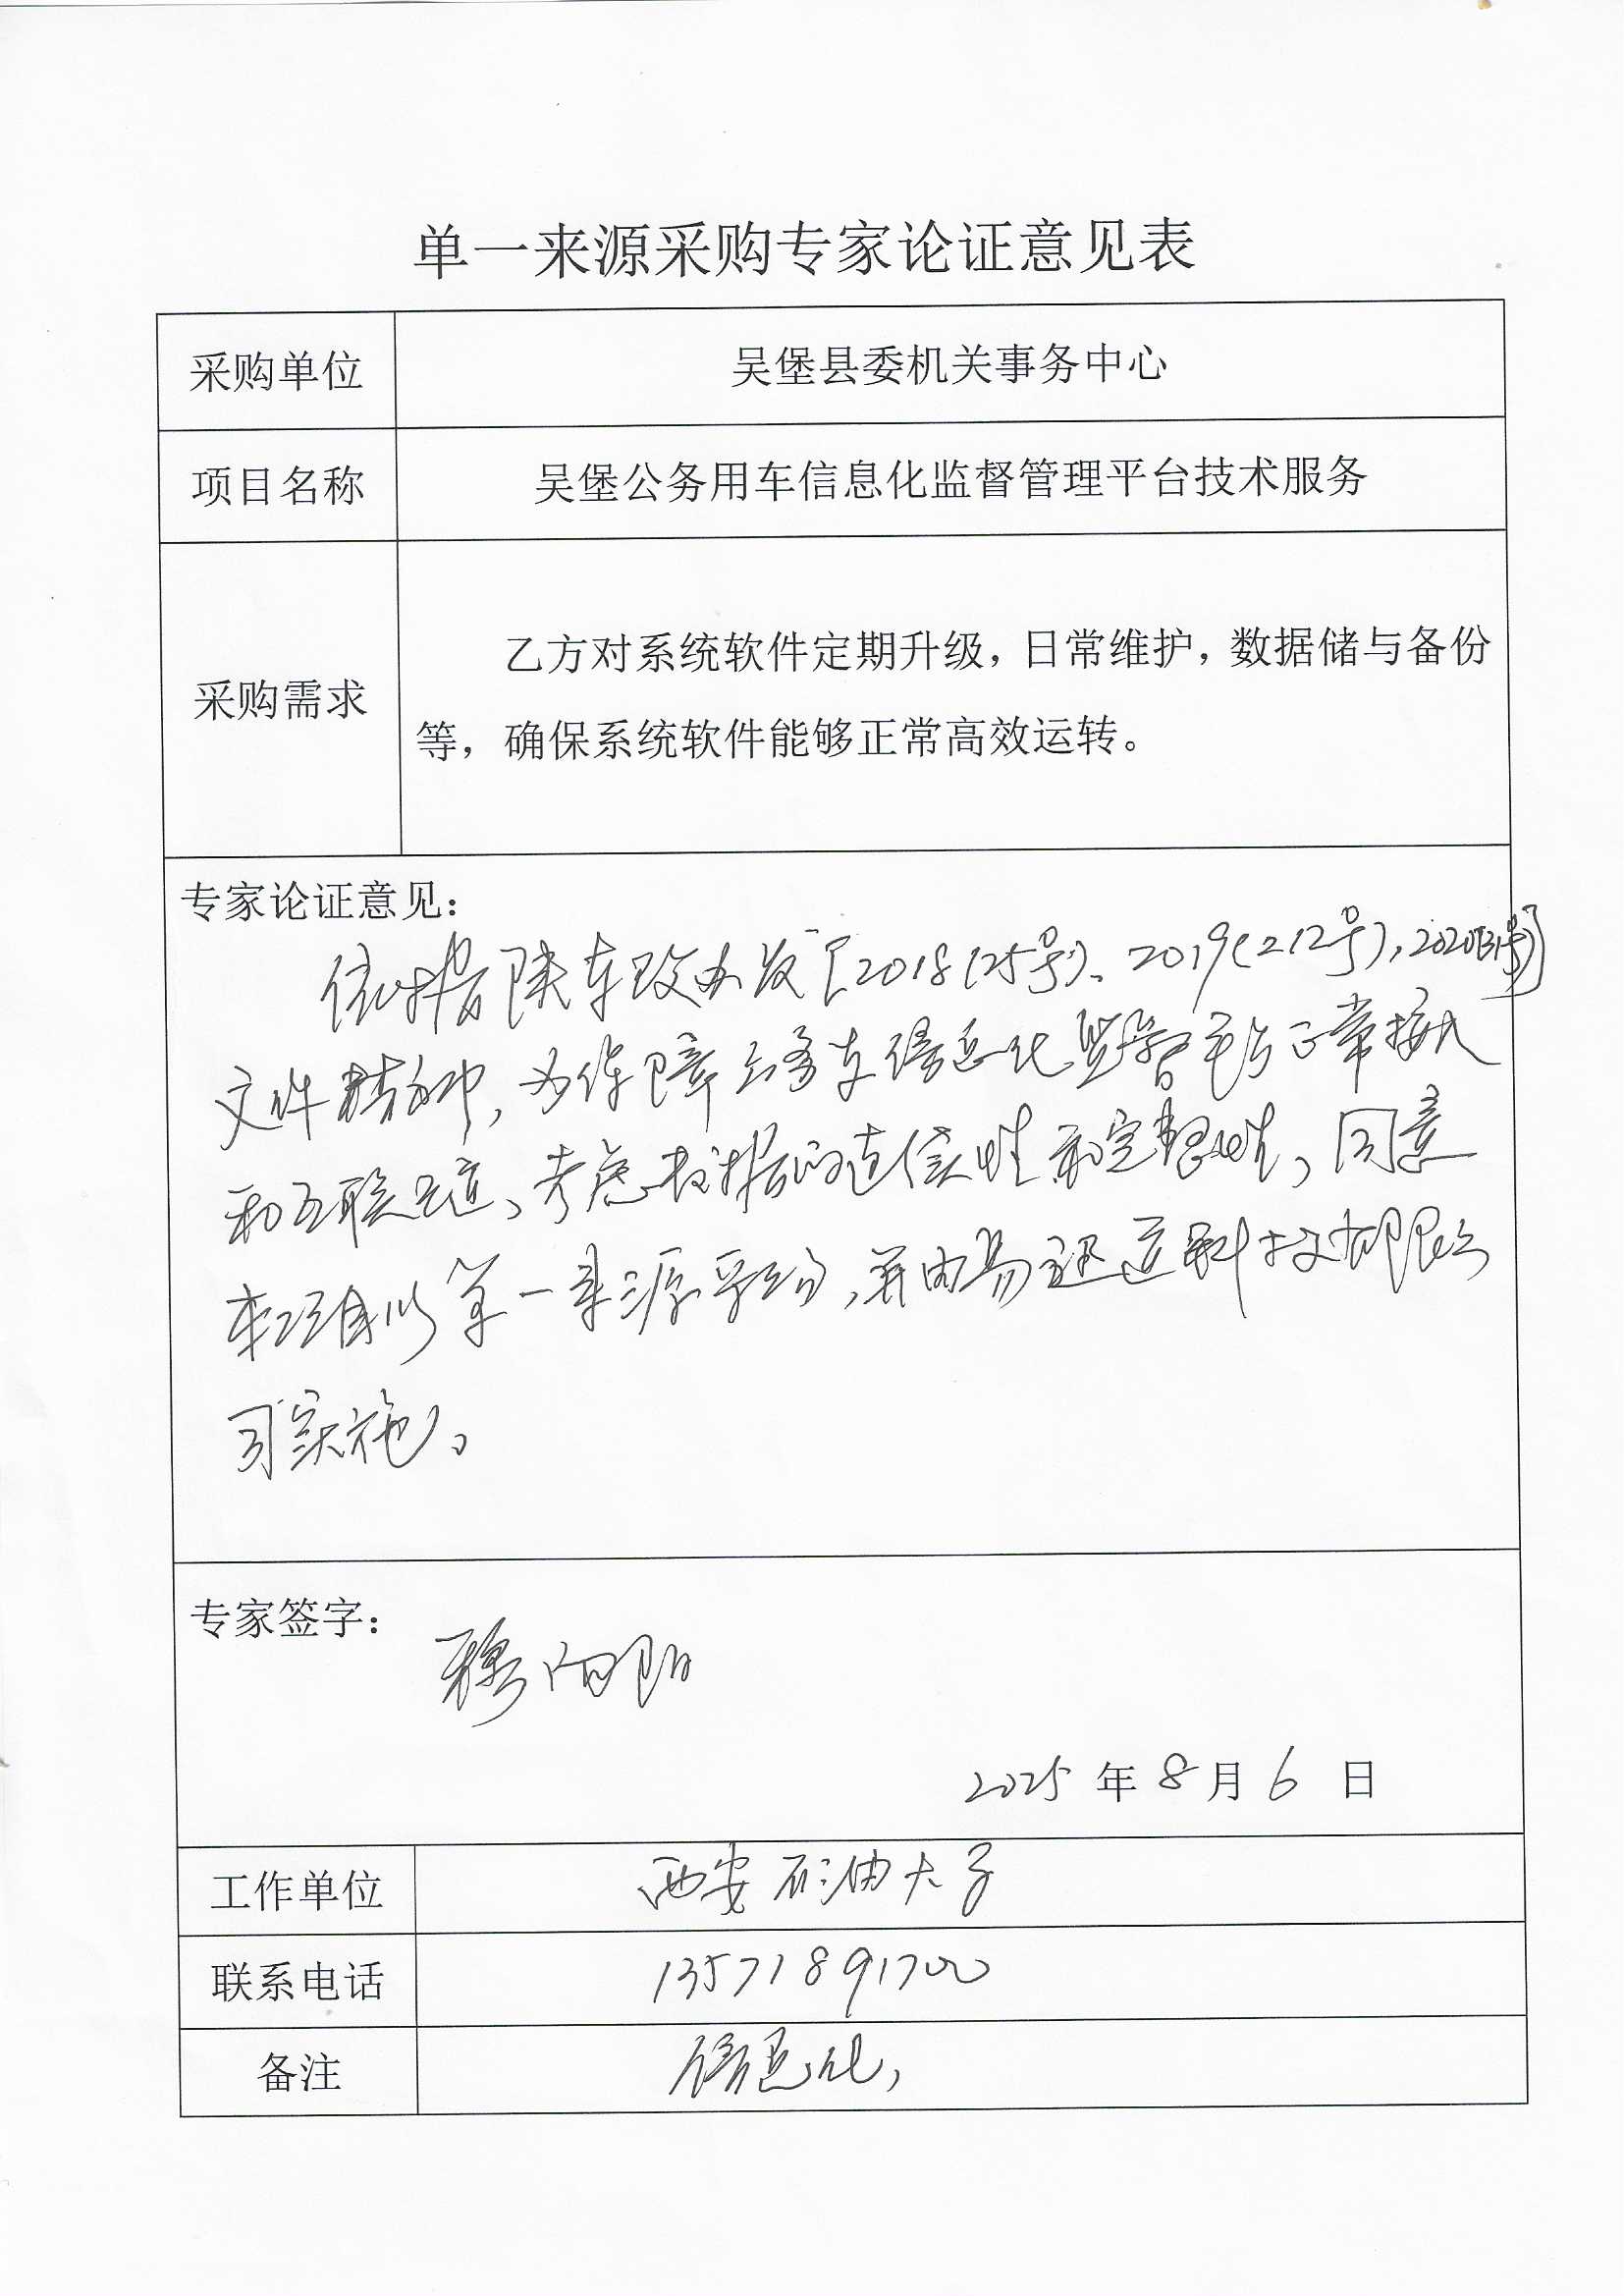 单一来源采购专家论证意见表
采购单位
吴堡县委机关事务中心
项目名称
吴堡公务用车信息化监督管理平台技术服务
采购需求
乙方对系统软件定期升级，日常维护，数据储与备份
等，确保系统软件能够正常高效运转。
专家论证意见：
依据陕车改办发[2018(25号)、2019(212号),2020(31号)]
文件精神，为保障公务车信息化监督平台正常接入
和互联互通、考虑数据的连续性和完整性，同意
本项目以单一来源采购，并由易迅通科技有限公
司实施。
专家签字：
穆向阳
2025 年 8 月 6 日
工作单位
西安石油大学
联系电话
13571891700
备注
信息化，